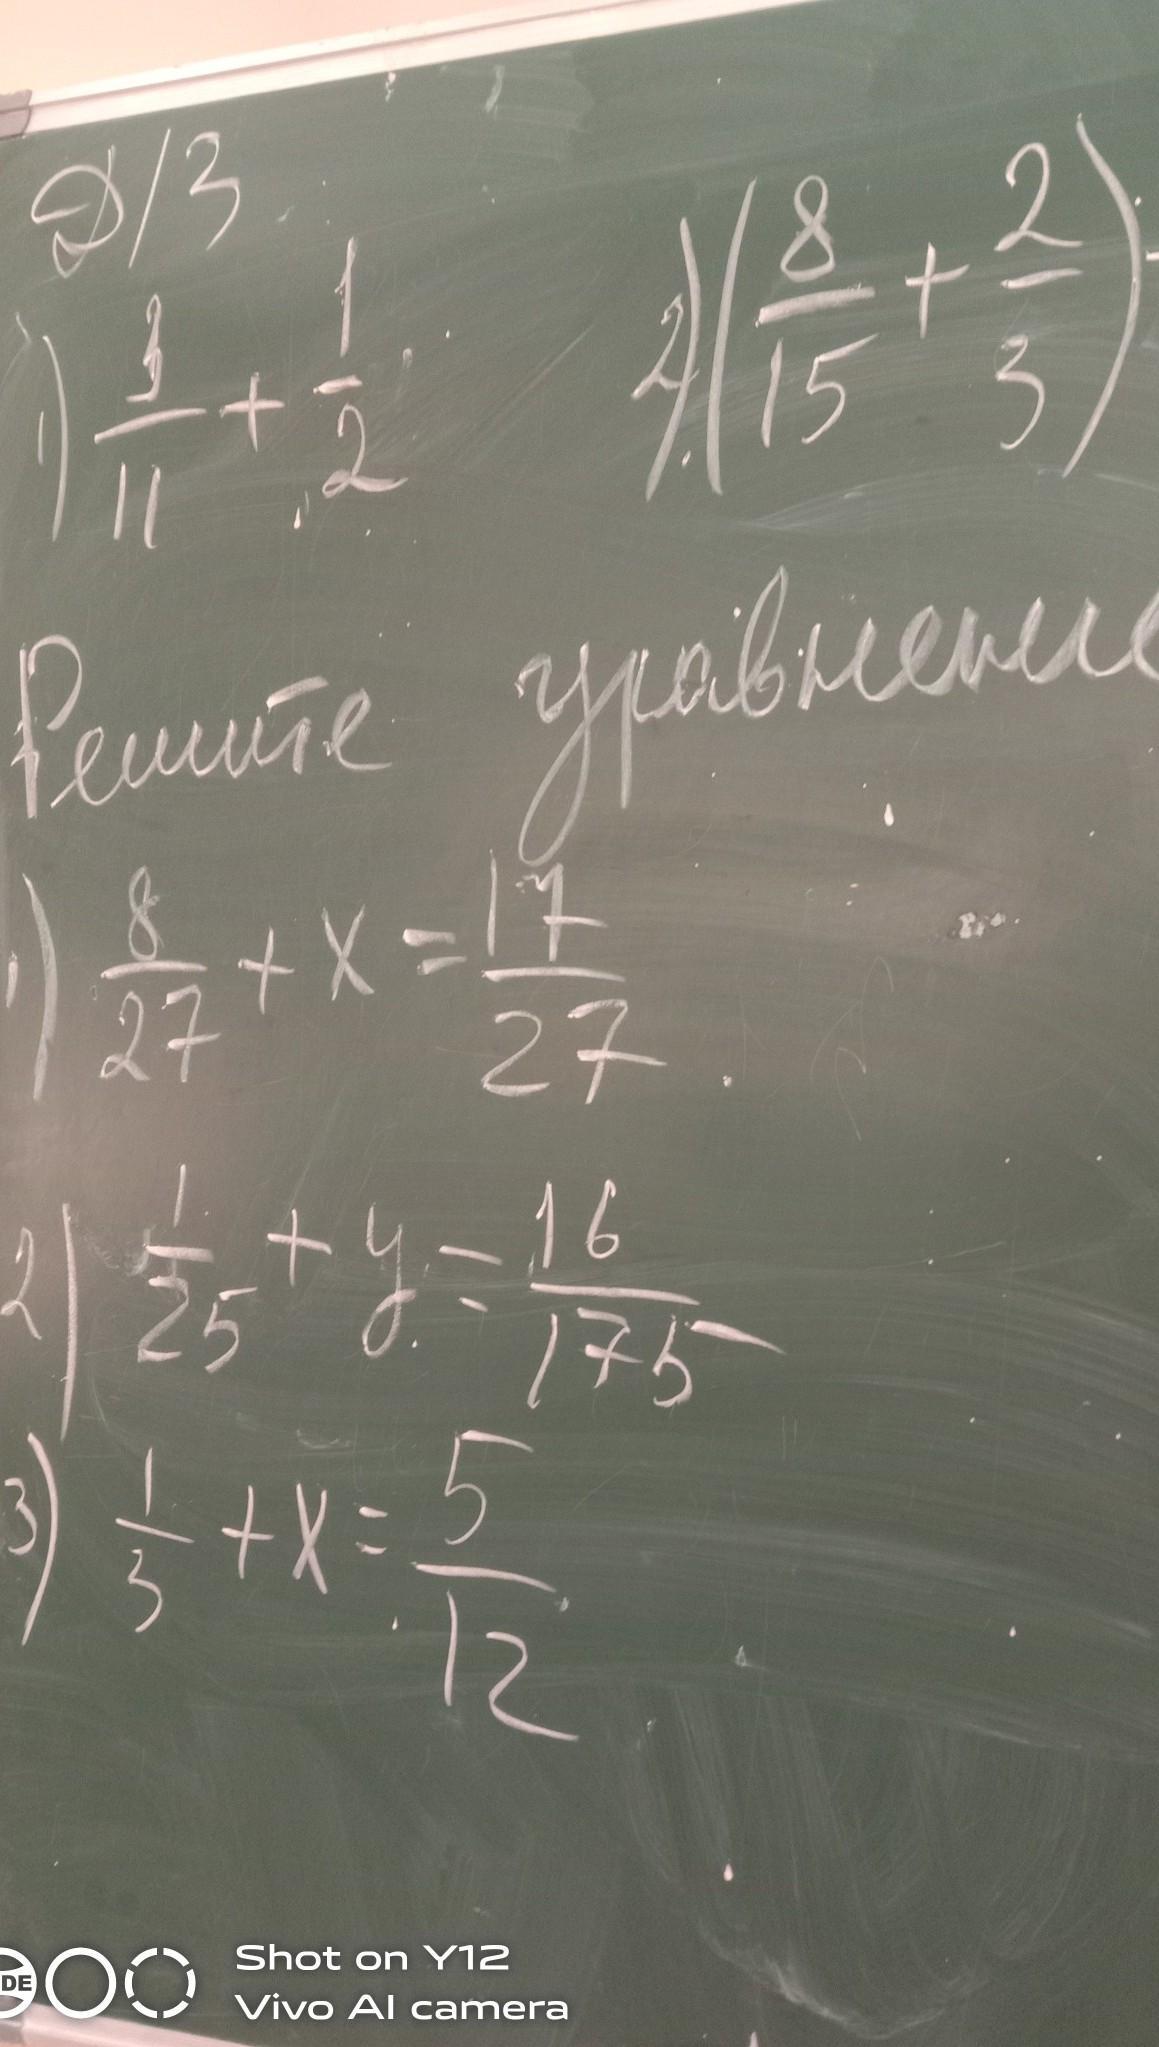 Д/З
1) 3/11 + 1/2
2) (8/15 + 2/3)
Решите уравнение
1) 8/27 + x = 17/27
2) 1/25 + y = 16/175
3) 1/3 + x = 5/12
DE
Shot on Y12
Vivo AI camera